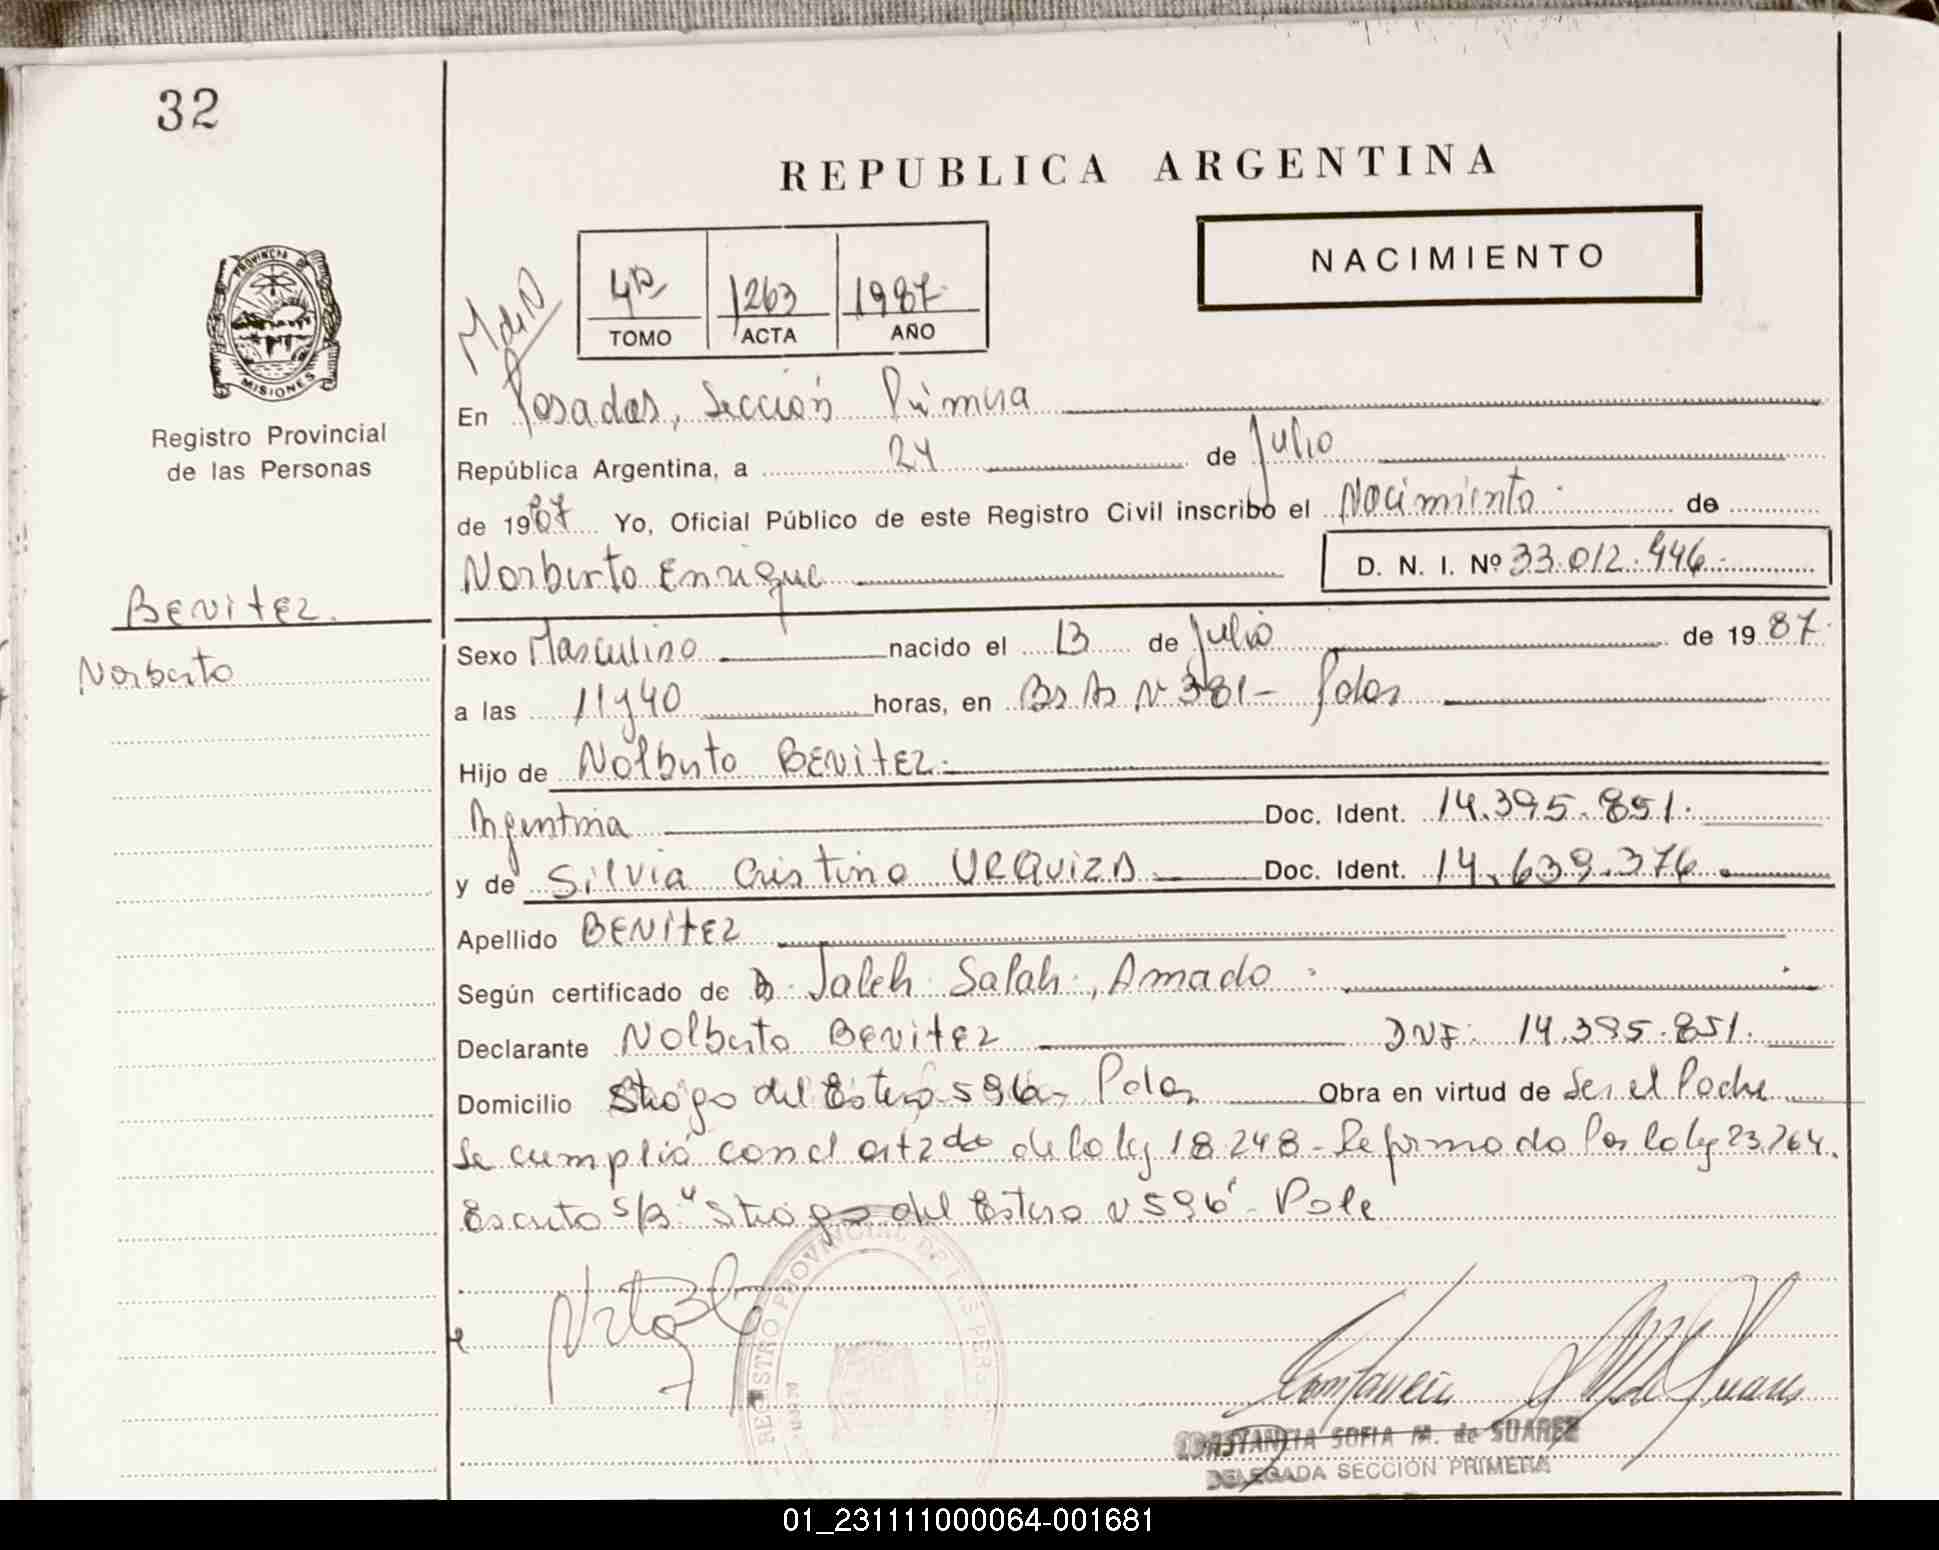 32
REPUBLICA ARGENTINA
NACIMIENTO
PROVINCIA DE
MISIONES
Registro Provincial
de las Personas
M de N
1263 1987
TOMO ACTA AÑO
En Posadas, Sección Primera
República Argentina, a 24 de Julio
de 1987 Yo, Oficial Público de este Registro Civil inscribo el Nacimiento de
Norberto Enrique D. N. I. Nº 33.012.446
BENITEZ
Norberto
Sexo Masculino nacido el 13 de Julio de 1987
a las 11 y 40 horas, en Bs As Nº 381 - Pdas
Hijo de Nolberto BENITEZ
Argentina Doc. Ident. 14.395.851
y de Silvia Cristina URQUIZA Doc. Ident. 14.639.376
Apellido BENITEZ
Según certificado de Jaleh Salah, Amado
Declarante Nolberto BENITEZ DNI: 14.395.851
Domicilio Stiago del Estero 596, Pdas Obra en virtud de Ser el Padre
Se cumplió con el art 2do de la ley 18.248 - Reformado Por la ley 23.264.
Escrito s/B "Stiago del Estero Nº 596" -
REGISTRO PROVINCIAL DE LAS PERSONAS
CONSTANCIA SOFIA M. de SUAREZ
DELEGADA SECCION PRIMERA
01_231111000064-001681